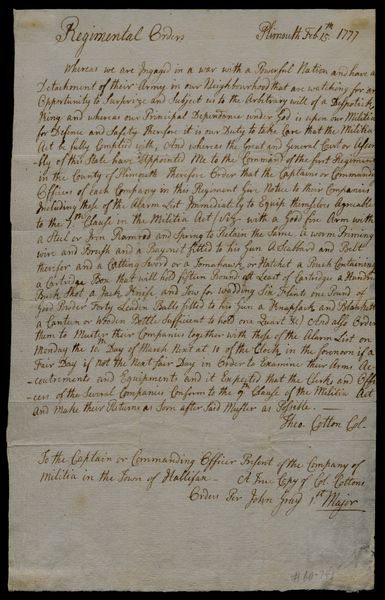 Regimental Orders Plimouth Feb 15th 1777
Whereas we are Ingaged in a war with a Powerful Nation and have a
Detachment of their Army in our Neighbourhood that are watching for an
Opportunity to Surprize and Subject us to the Arbitrary will of a Dispotick
King and whereas our Principal Dependance under God is upon our Militia
for Defence and Safety therefore it is our Duty to take Care that the Militia
Act be fully Complied with, And whereas the Great and General Court or Assem-
bly of this State have Appointed Me to the Command of the first Regiment
in the County of Plimouth Therefore Order that the Captains or Commanding
Officers of Each Company in this Regiment Give Notice to their Companies
Including those of the Alarm List Immediately to Equip themselves Agreable
to the Clause in the Militia Act (Viz) with a Good fire Arm with
a Steel or Iron Ramrod and Spring to Retain the Same a worm Priming
wire and Brush and a Bayonet fitted to his Gun A Scabbard and Belt
therefor and a Cutting Sword or a Tomahawk or Hatchet a Pouch Containing
a Cartridge Box that will hold fifteen Round at Least of Cartridges a Hundred
Buck Shot a Jack Knife and Tow for Wadding Six flints one Pound of
Good Powder Forty Leaden Balls fitted to his Gun a Knapsack and Blanket
a Canteen or Wooden Bottle Sufficient to hold one Quart &c) And also Order
them to Muster their Companies together with those of the Alarm List on
Monday the 10th Day of March Next at 10 of the Clock in the forenoon if a
Fair Day if not the Next fair Day in Order to Examine their Arms Ac-
coutrements and Equipments and it Expected that the Clerks and Offi-
cers of the Several Companies Conform to the 9th Clause of the Militia Act
and Make their Returns as Soon after Said Muster as Possible.
Theo. Cotton Col.
To the Captain or Commanding Officer Present of the Company of
Militia in the Town of Hallifax - A True Copy of Col. Cottons
Orders Per John Gray 1st Major